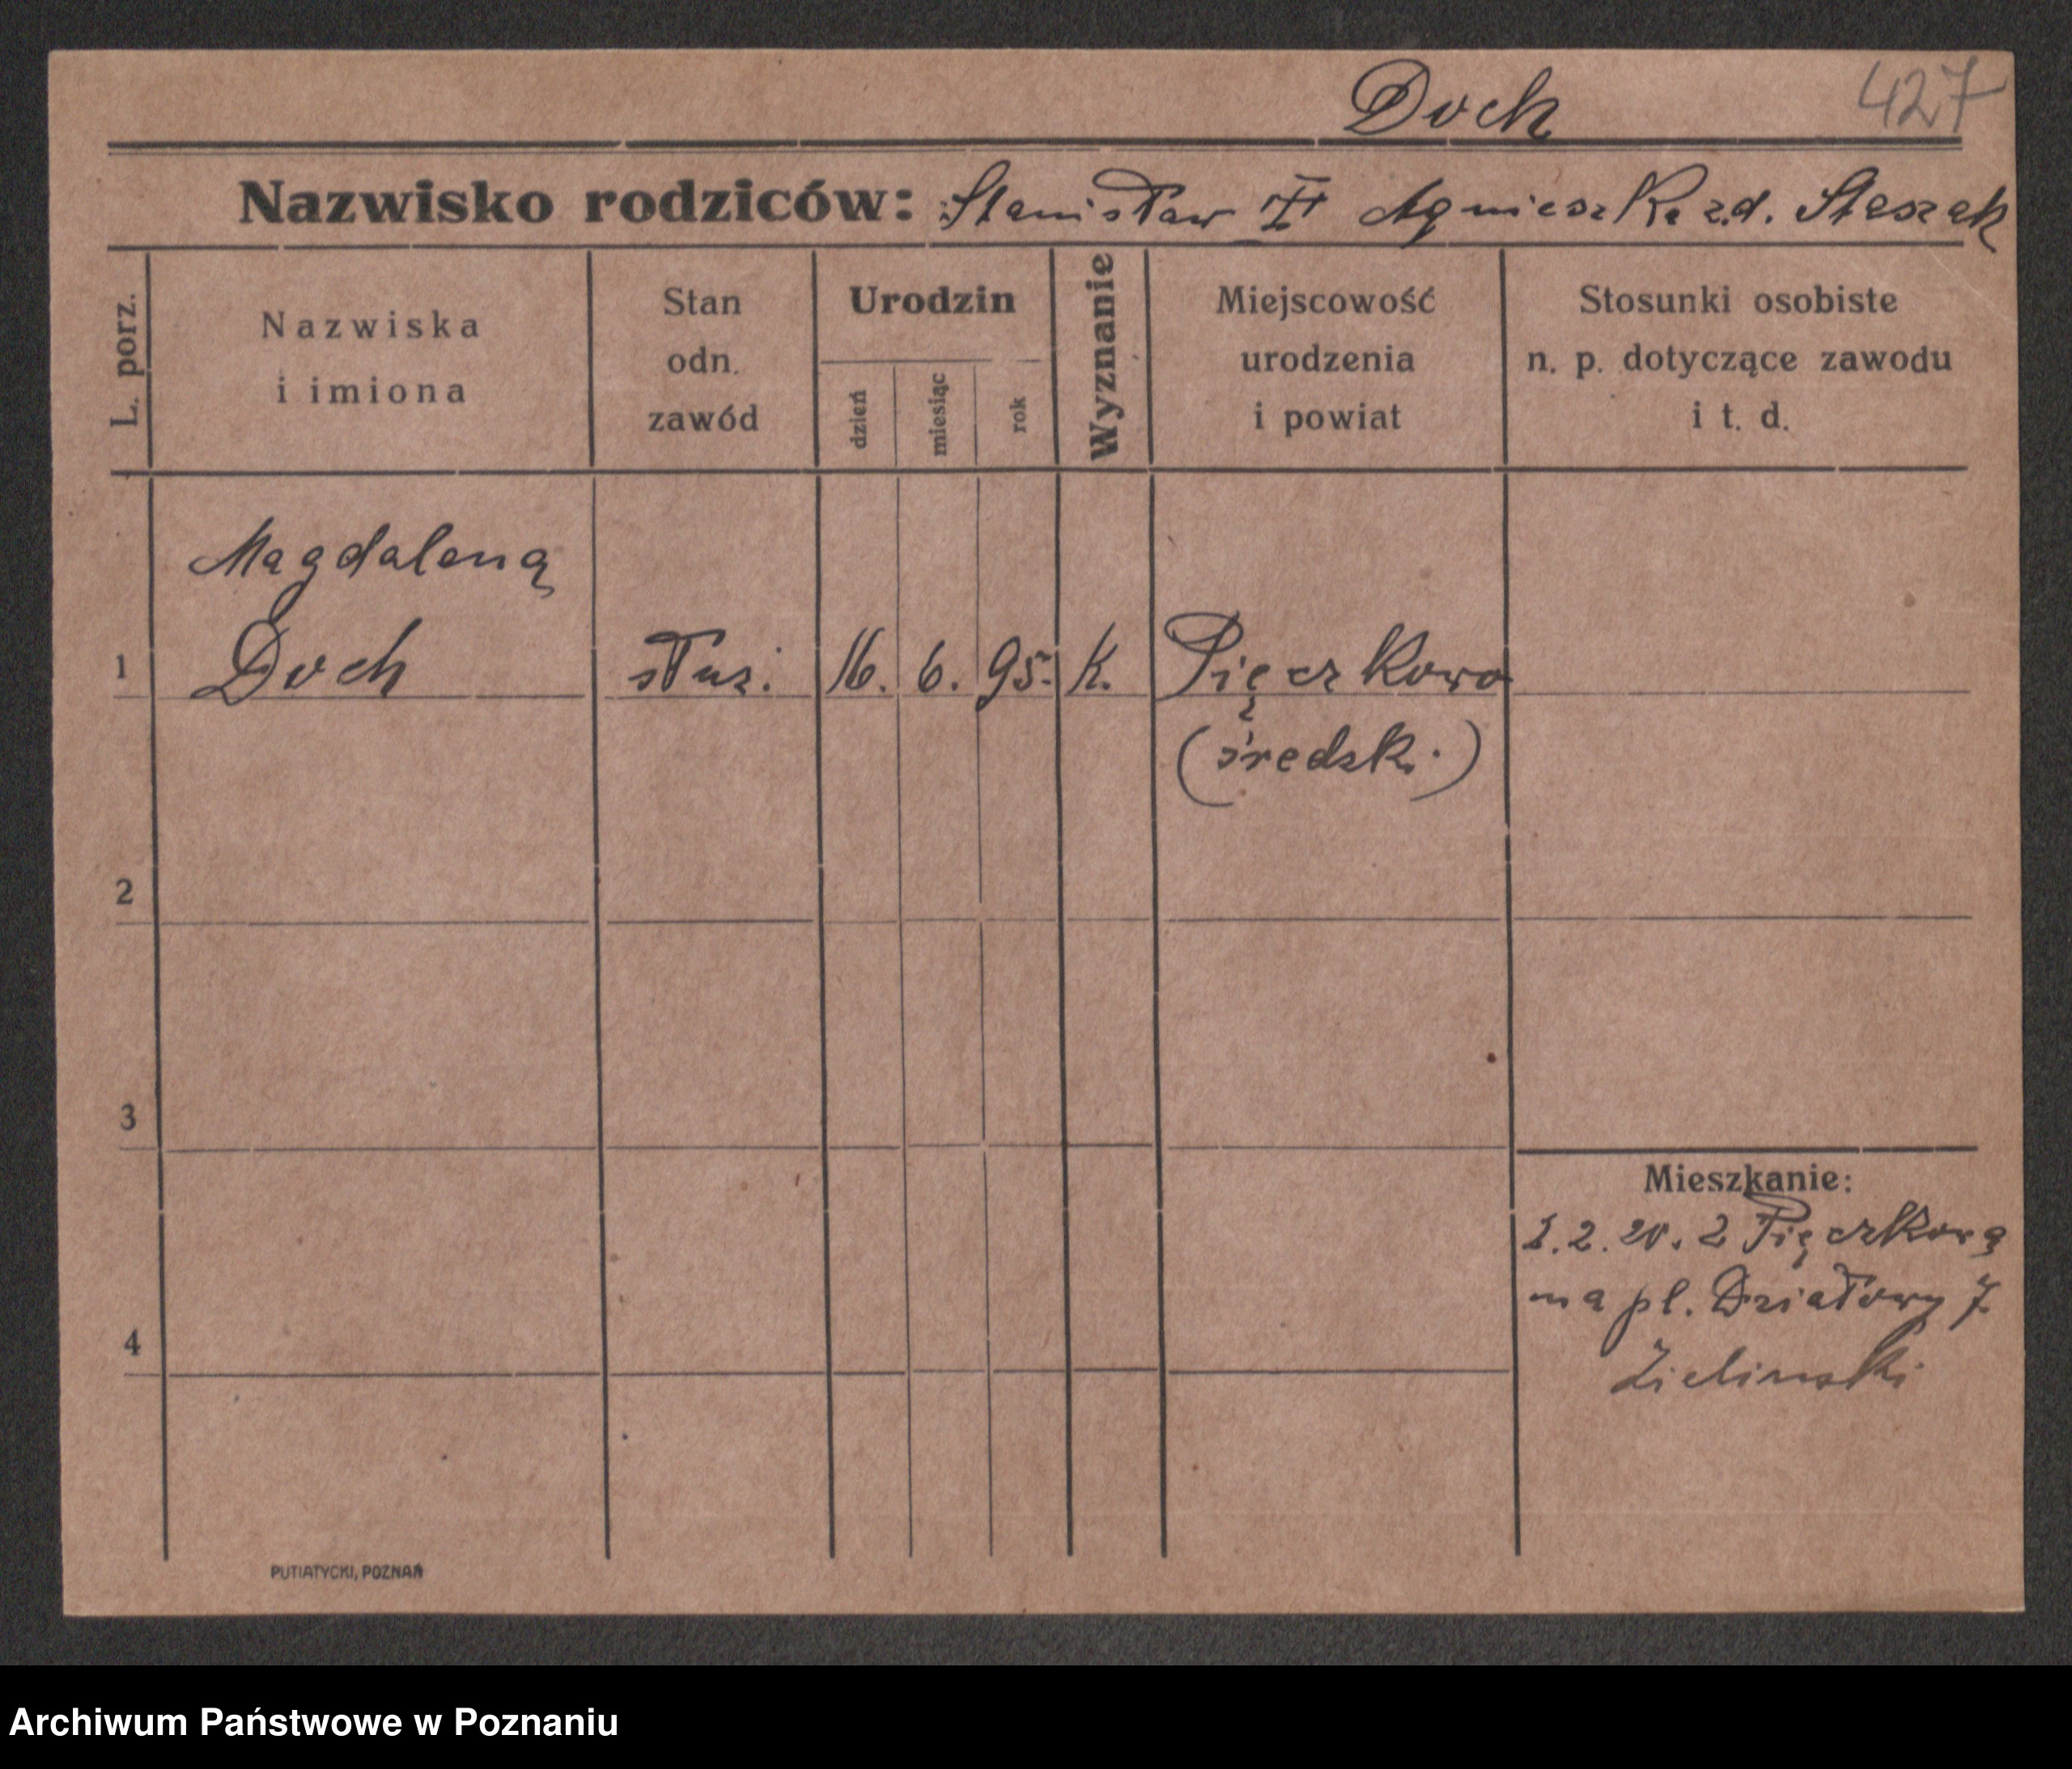 Doch 427
Nazwisko rodziców: Stanisław Agnieszka z.d. Staszak
L. porz.
Nazwiska
i imiona
Stan
odn.
zawód
Urodzin
dzień
miesiąc
rok
Wyznanie
Miejscowość
urodzenia
i powiat
Stosunki osobiste
n. p. dotyczące zawodu
i t. d.
Magdalena
1 Doch służ. 16. 6. 95. K. Pięczkowo
(średzk.)
2
3
4
Mieszkanie:
2. 20. z Pięczkowa
na pl. Działowy 7
Zielinski
PUTIATYCKI, POZNAŃ
Archiwum Państwowe w Poznaniu